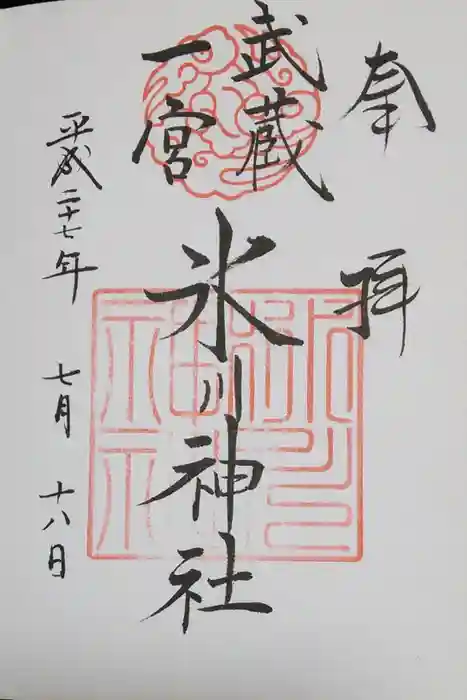 奉拝
武蔵
一宮
氷川神社
平成二十七年 七月 十八日
氷川神社